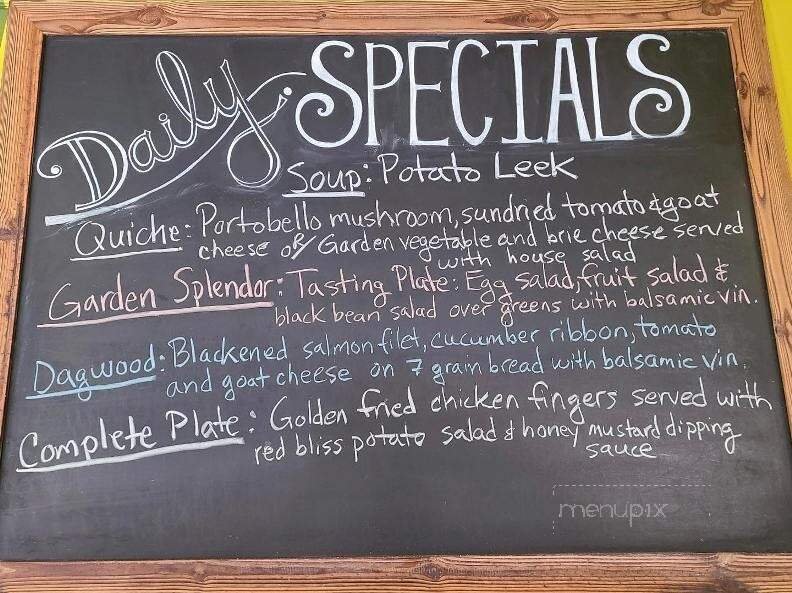 Daily SPECIALS
Soup: Potato Leek
Quiche: Portobello mushroom, sundried tomato & goat
cheese OR/ Garden vegetable and brie cheese served
with house salad
Garden Splendor: Tasting Plate: Egg salad, fruit salad &
black bean salad over greens with balsamic vin.
Dagwood: Blackened salmon filet, cucumber ribbon, tomato
and goat cheese on 7 grain bread with balsamic vin.
Complete Plate: Golden fried chicken fingers served with
red bliss potato salad & honey mustard dipping
sauce
menupix